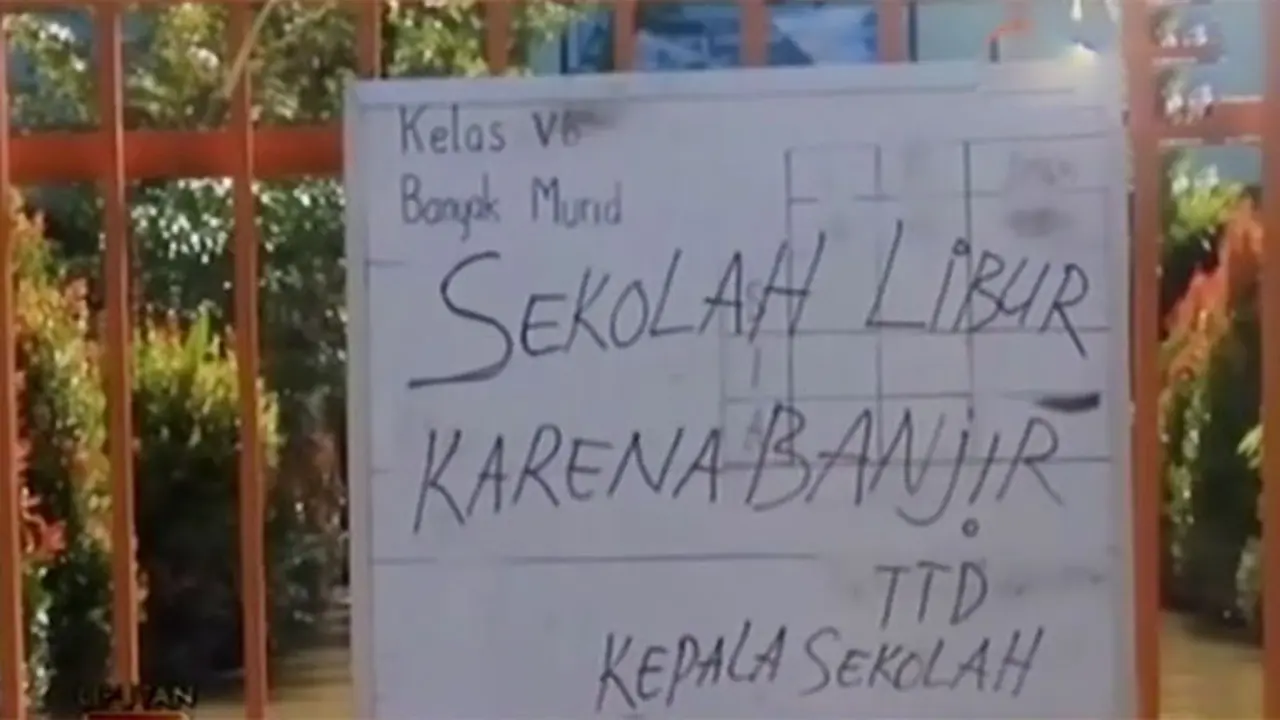 Kelas VB
Banyak Murid
SEKOLAH LiBUR
KARENA BANjIR
TTD
KEPALA SEKOLAH
LIPUTAN